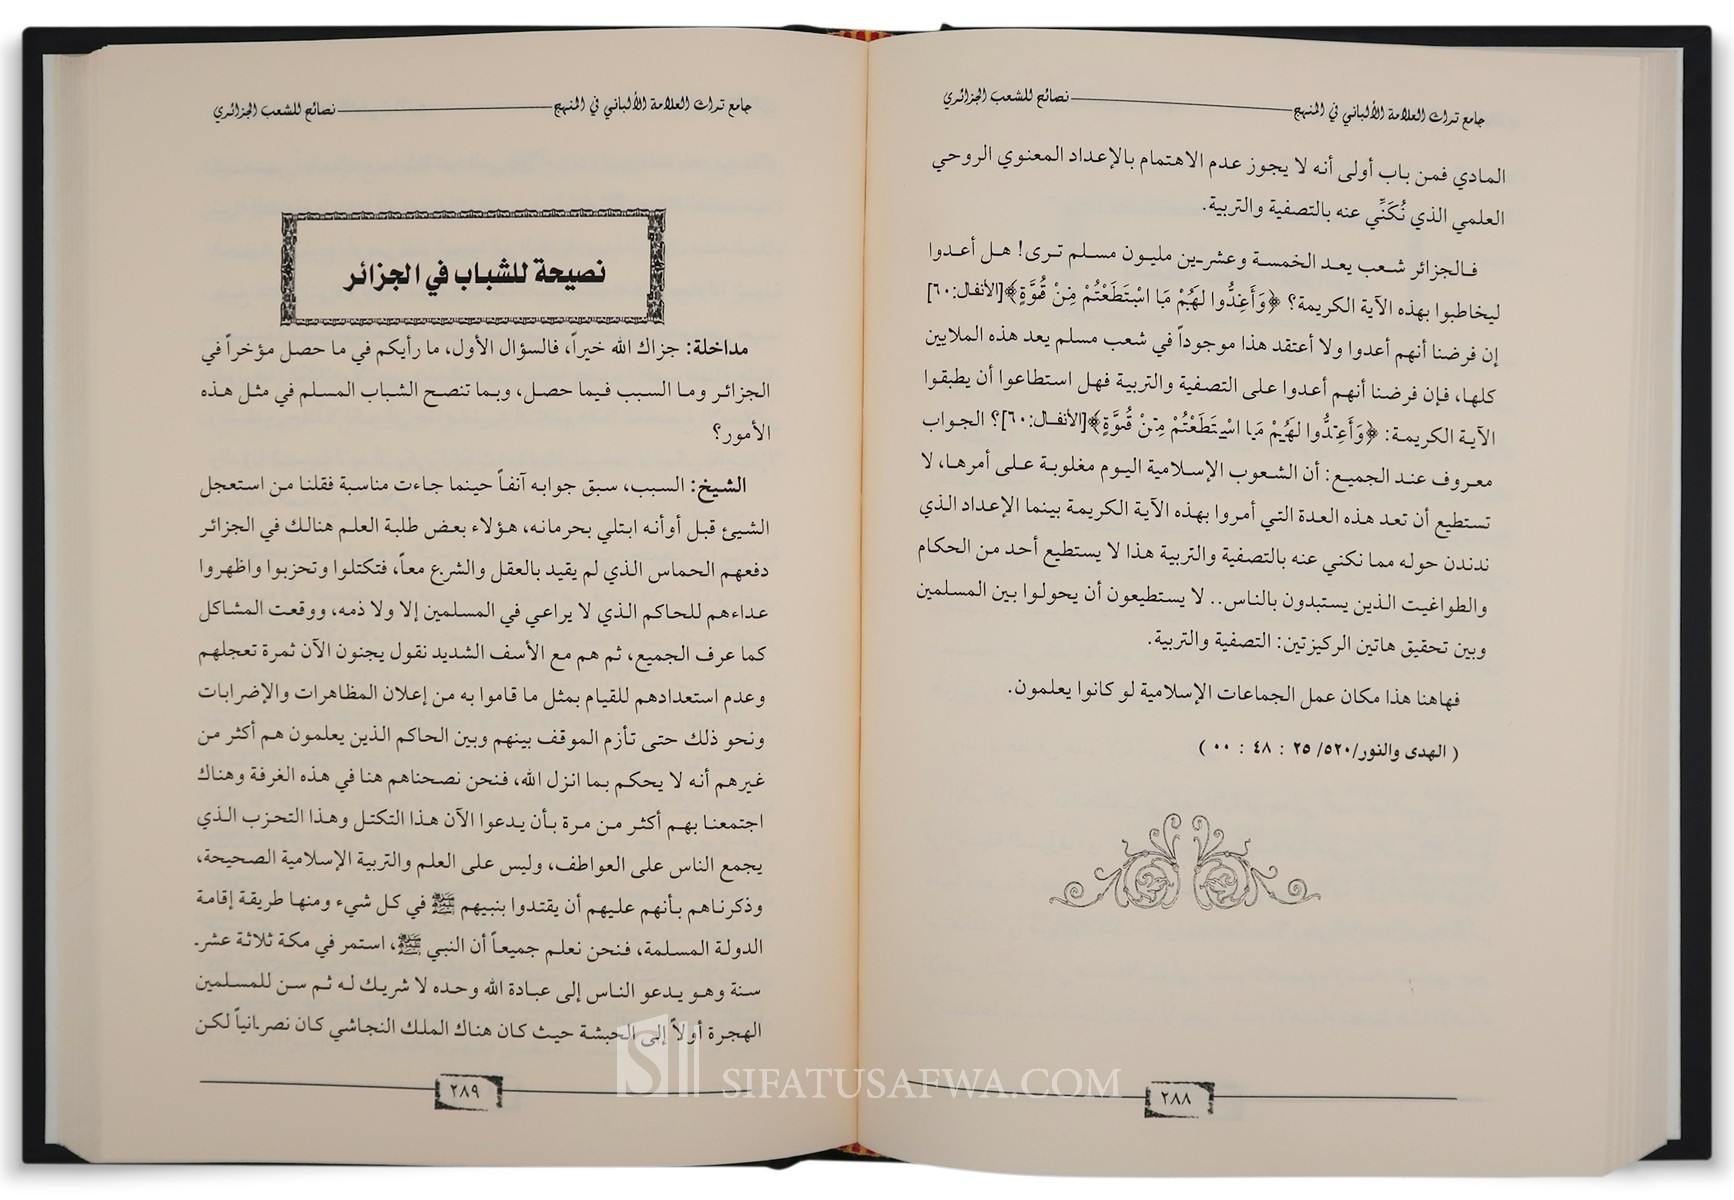 جامع تراث العلامة الألباني في المنهج نصائح للشعب الجزائري
المادي فمن باب أولى أنه لا يجوز عدم الاهتمام بالإعداد المعنوي الروحي
العلمي الذي نُكَنِّي عنه بالتصفية والتربية.
فالجزائر شعب يعد الخمسة وعشرين مليون مسلم ترى! هل أعدوا
ليخاطبوا بهذه الآية الكريمة؟ ﴿وَأَعِدُّوا لَهُمْ مَا اسْتَطَعْتُمْ مِنْ قُوَّةٍ﴾[الأنفال:٦٠]
إن فرضنا أنهم أعدوا ولا أعتقد هذا موجوداً في شعب مسلم يعد هذه الملايين
كلها، فإن فرضنا أنهم أعدوا على التصفية والتربية فهل استطاعوا أن يطبقوا
الآية الكريمة: ﴿وَأَعِدُّوا لَهُمْ مَا اسْتَطَعْتُمْ مِنْ قُوَّةٍ﴾[الأنفال:٦٠]؟ الجواب
معروف عند الجميع: أن الشعوب الإسلامية اليوم مغلوبة على أمرها، لا
تستطيع أن تعد هذه العدة التي أمروا بهذه الآية الكريمة بينما الإعداد الذي
ندندن حوله مما نكني عنه بالتصفية والتربية هذا لا يستطيع أحد من الحكام
والطواغيت الذين يستبدون بالناس.. لا يستطيعون أن يحولوا بين المسلمين
وبين تحقيق هاتين الركيزتين: التصفية والتربية.
فهاهنا هذا مكان عمل الجماعات الإسلامية لو كانوا يعلمون.
( الهدى والنور/٥٢٠/ ٢٥ : ٤٨ : ٠٠ )
٢٨٨
جامع تراث العلامة الألباني في المنهج نصائح للشعب الجزائري
نصيحة للشباب في الجزائر
مداخلة: جزاك الله خيراً، فالسؤال الأول، ما رأيكم في ما حصل مؤخراً في
الجزائر وما السبب فيما حصل، وبما تنصح الشباب المسلم في مثل هذه
الأمور؟
الشيخ: السبب، سبق جوابه آنفاً حينما جاءت مناسبة فقلنا من استعجل
الشيئ قبل أوأنه ابتلي بحرمانه، هؤلاء بعض طلبة العلم هنالك في الجزائر
دفعهم الحماس الذي لم يقيد بالعقل والشرع معاً، فتكتلوا وتحزبوا واظهروا
عداءهم للحاكم الذي لا يراعي في المسلمين إلا ولا ذمه، ووقعت المشاكل
كما عرف الجميع، ثم هم مع الأسف الشديد نقول يجنون الآن ثمرة تعجلهم
وعدم استعدادهم للقيام بمثل ما قاموا به من إعلان المظاهرات والإضرابات
ونحو ذلك حتى تأزم الموقف بينهم وبين الحاكم الذين يعلمون هم أكثر من
غيرهم أنه لا يحكم بما انزل الله، فنحن نصحناهم هنا في هذه الغرفة وهناك
اجتمعنا بهم أكثر من مرة بأن يدعوا الآن هذا التكتل وهذا التحزب الذي
يجمع الناس على العواطف، وليس على العلم والتربية الإسلامية الصحيحة،
وذكرناهم بأنهم عليهم أن يقتدوا بنبيهم ﷺ في كل شيء ومنها طريقة إقامة
الدولة المسلمة، فنحن نعلم جميعاً أن النبي ﷺ، استمر في مكة ثلاثة عشر
سنة وهو يدعو الناس إلى عبادة الله وحده لا شريك له ثم سن للمسلمين
الهجرة أولاً إلى الحبشة حيث كان هناك الملك النجاشي كان نصرانياً لكن
٢٨٩
SIFATUSAFWA.COM